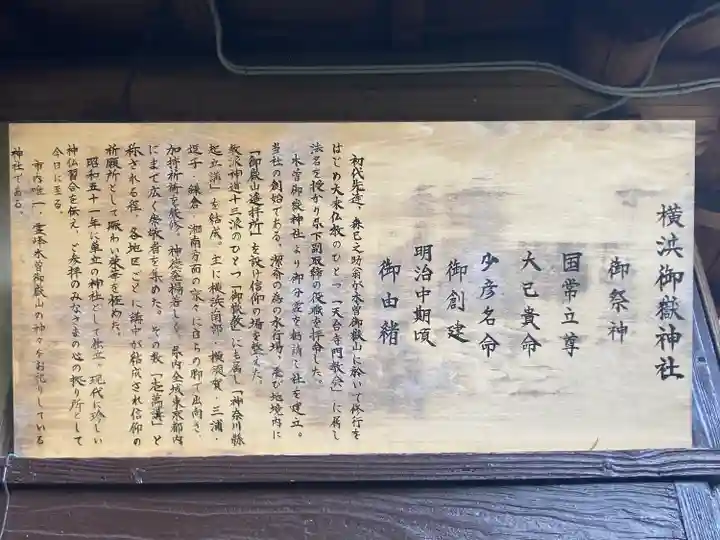 横浜御嶽神社
御祭神
国常立尊
大己貴命
少彦名命
御創建
明治中期頃
御由緒
初代先達、森巳之助翁が木曽御嶽山に於いて修行を
はじめ天束仏教のひとつ「天台寺門教会」に属し
法名を授かり県下副取締の役職を拝命した。
木曽御嶽神社より御分霊を勧請し社を建立。
当社の創始である。潔斎の為の水行場、並び地境内に
「御嶽山遥拝所」を設け信仰の場を整えた。
教派神道十三派のひとつ「御嶽教」にも属し「神奈川縣
起立講」を結成。主に横浜南部・横須賀・三浦・
逗子・鎌倉・湘南方面の家々に自らの脚で出向き、
加持祈祷を厳修。神徳発揚著しく、県内全域東京都内
にまで広く崇敬者を集めた。その数「壱萬講」と
称される程、各地区ごとに講中が結成され信仰の
祈願所として賑わい栄華を極めた。
昭和五十一年に単立の神社として独立。現代に珍しい
神仏習合を伝え、ご参拝のみなさまの心の拠り所として
今日に至る。
市内唯一・霊峰木曽御嶽山の神々をお祀りしている
神社である。